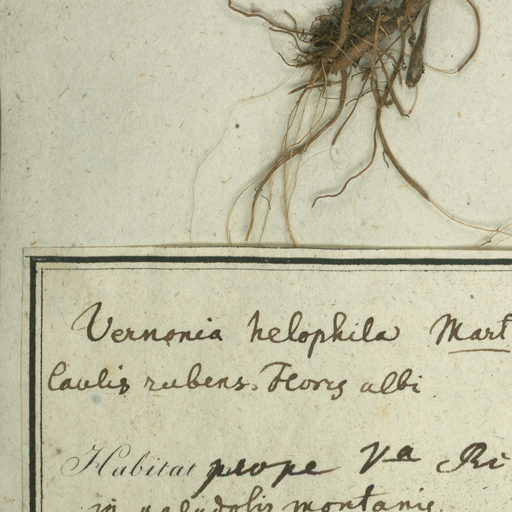 Vernonia helophila Mart
Caulis rubens. Flores albi
Habitat prope Va Ri
in paludosis montanis